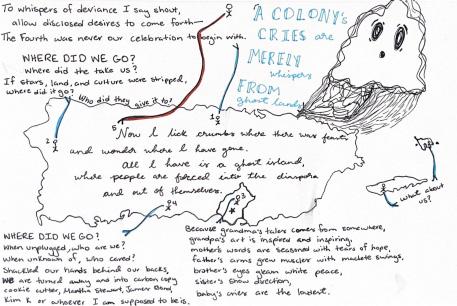 To whispers of deviance I say shout,
allow disclosed desires to come forth—
The Fourth was never our celebration to begin with.
A COLONY's
CRIES are
MERELY
whispers
FROM
ghost lands
WHERE DID WE GO?
Where did the take us?
If stars, land, and culture were stripped,
where did it go?
Who did they give it to?
5
1
2
Now I lick crumbs where there was feasts
and wonder where I have gone.
All I have is a ghost island,
where people are forced into the diaspora
and out of themselves.
3
4
what about
us?
WHERE DID WE GO?
When unplugged, who are we?
When unknown of, who cared?
Shackled our hands behind our backs,
WE are turned away and into carbon copy
cookie cutter, Martha Stewart, James Dean,
Kim K or whoever I am supposed to be is.
Because grandma's tales comes from somewhere,
grandpa's art is inspired and inspiring,
mother's words are seasoned with tears of hope,
father's arms grew muscles with machete swings,
brother's eyes gleam white peace,
sister's show direction,
baby's cries are the loudest.